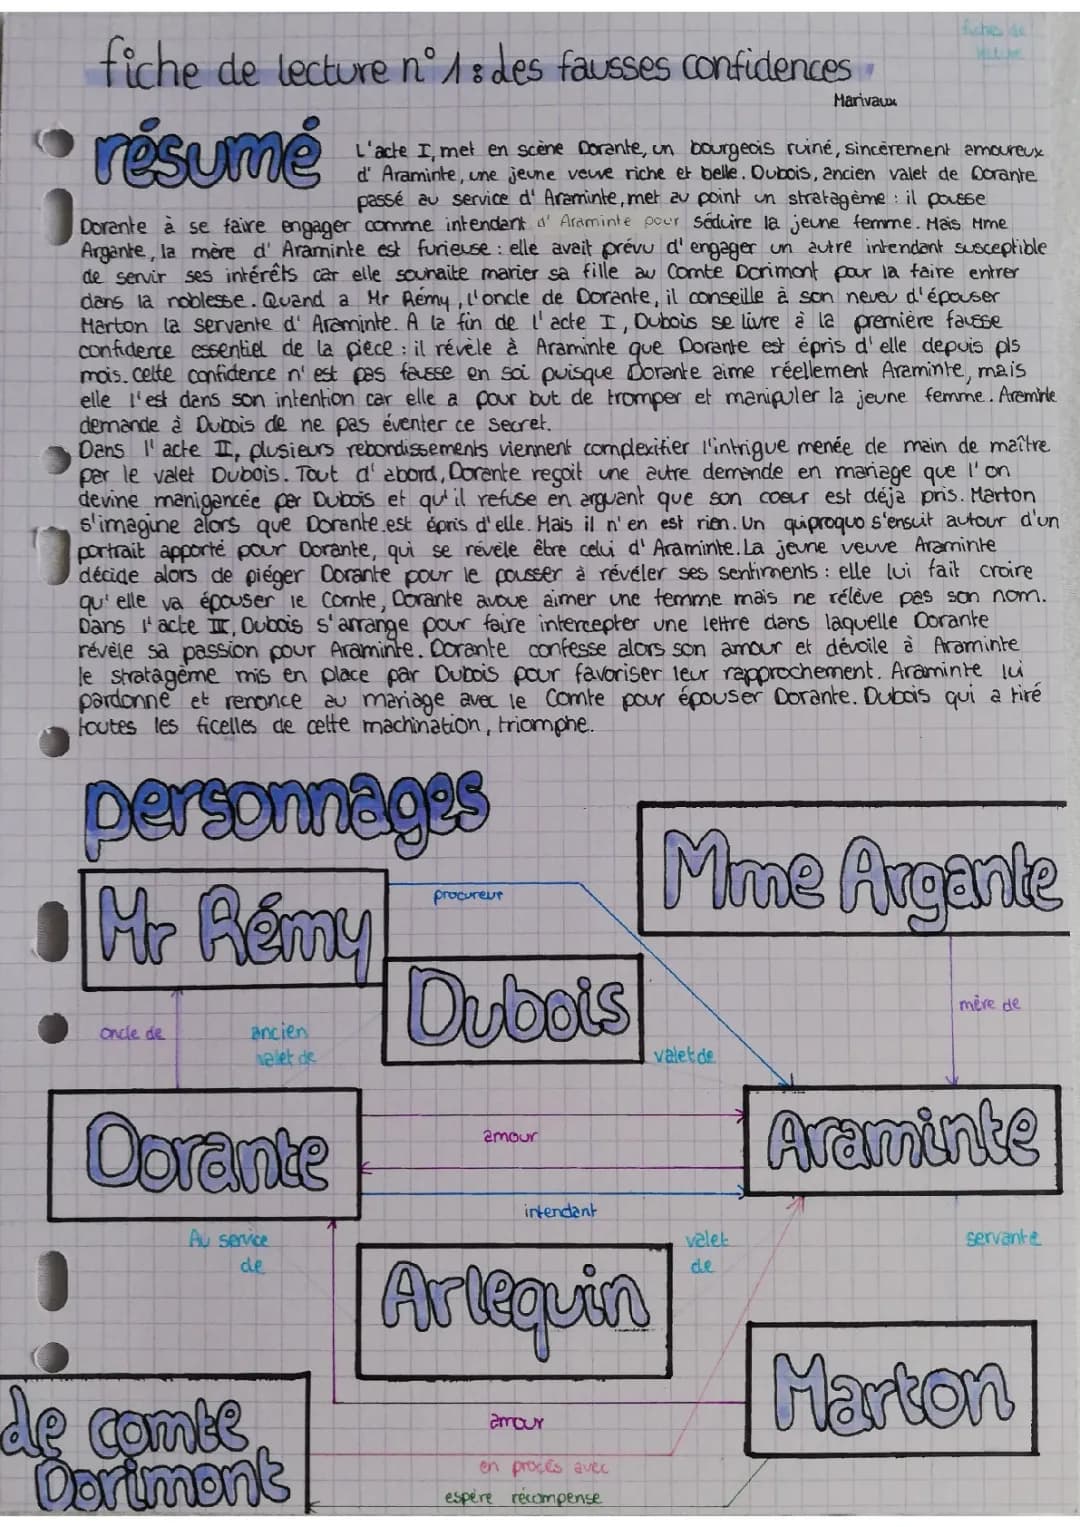 fiches de
lecture
fiche de lecture n°1 : des fausses confidences
Marivaux
résumé
L'acte I, met en scène Dorante, un bourgeois ruiné, sincèrement amoureux
d' Araminte, une jeune veuve riche et belle. Dubois, ancien valet de Dorante
passé au service d' Araminte, met au point un stratagème : il pousse
Dorante à se faire engager comme intendant d' Araminte pour séduire la jeune femme. Mais Mme
Argante, la mère d' Araminte est furieuse : elle avait prévu d'engager un autre intendant susceptible
de servir ses intérêts car elle souhaite marier sa fille au Comte Dorimont pour la faire entrer
dans la noblesse. Quand a Mr Rémy, l'oncle de Dorante, il conseille à son neveu d'épouser
Marton la servante d' Araminte. A la fin de l'acte I, Dubois se livre à la première fausse
confidence essentiel de la pièce : il révèle à Araminte que Dorante est épris d'elle depuis pls
mois. cette confidence n'est pas fausse en soi puisque Dorante aime réellement Araminte, mais
elle l'est dans son intention car elle a pour but de tromper et manipuler la jeune femme. Araminte
demande à Dubois de ne pas éventer ce secret.
Dans l'acte II, plusieurs rebondissements viennent complexifier l'intrigue menée de main de maître
par le valet Dubois. Tout d'abord, Dorante reçoit une autre demande en mariage que l'on
devine manigancée par Dubois et qu'il refuse en arguant que son coeur est déjà pris. Marton
s'imagine alors que Dorante est épris d'elle. Mais il n'en est rien. Un quiproquo s'ensuit autour d'un
portrait apporté pour Dorante, qui se révèle être celui d' Araminte. La jeune veuve Araminte
décide alors de piéger Dorante pour le pousser à révéler ses sentiments : elle lui fait croire
qu'elle va épouser le Comte, Dorante avoue aimer une femme mais ne rélève pas son nom.
Dans l'acte III, Dubois s'arrange pour faire intercepter une lettre dans laquelle Dorante
révèle sa passion pour Araminte. Dorante confesse alors son amour et dévoile à Araminte
le stratagème mis en place par Dubois pour favoriser leur rapprochement. Araminte lui
pardonne et renonce au mariage avec le Comte pour épouser Dorante. Dubois qui a tiré
toutes les ficelles de cette machination, triomphe.
personnages
Mme Argante
Mr Rémy
procureur
Dubois
mère de
oncle de
ancien
valet de
valet de
Dorante
amour
Araminte
intendant
Au service
de
valet
de
servante
Arlequin
Marton
de comte
Dorimont
amour
en procès avec
espère récompense